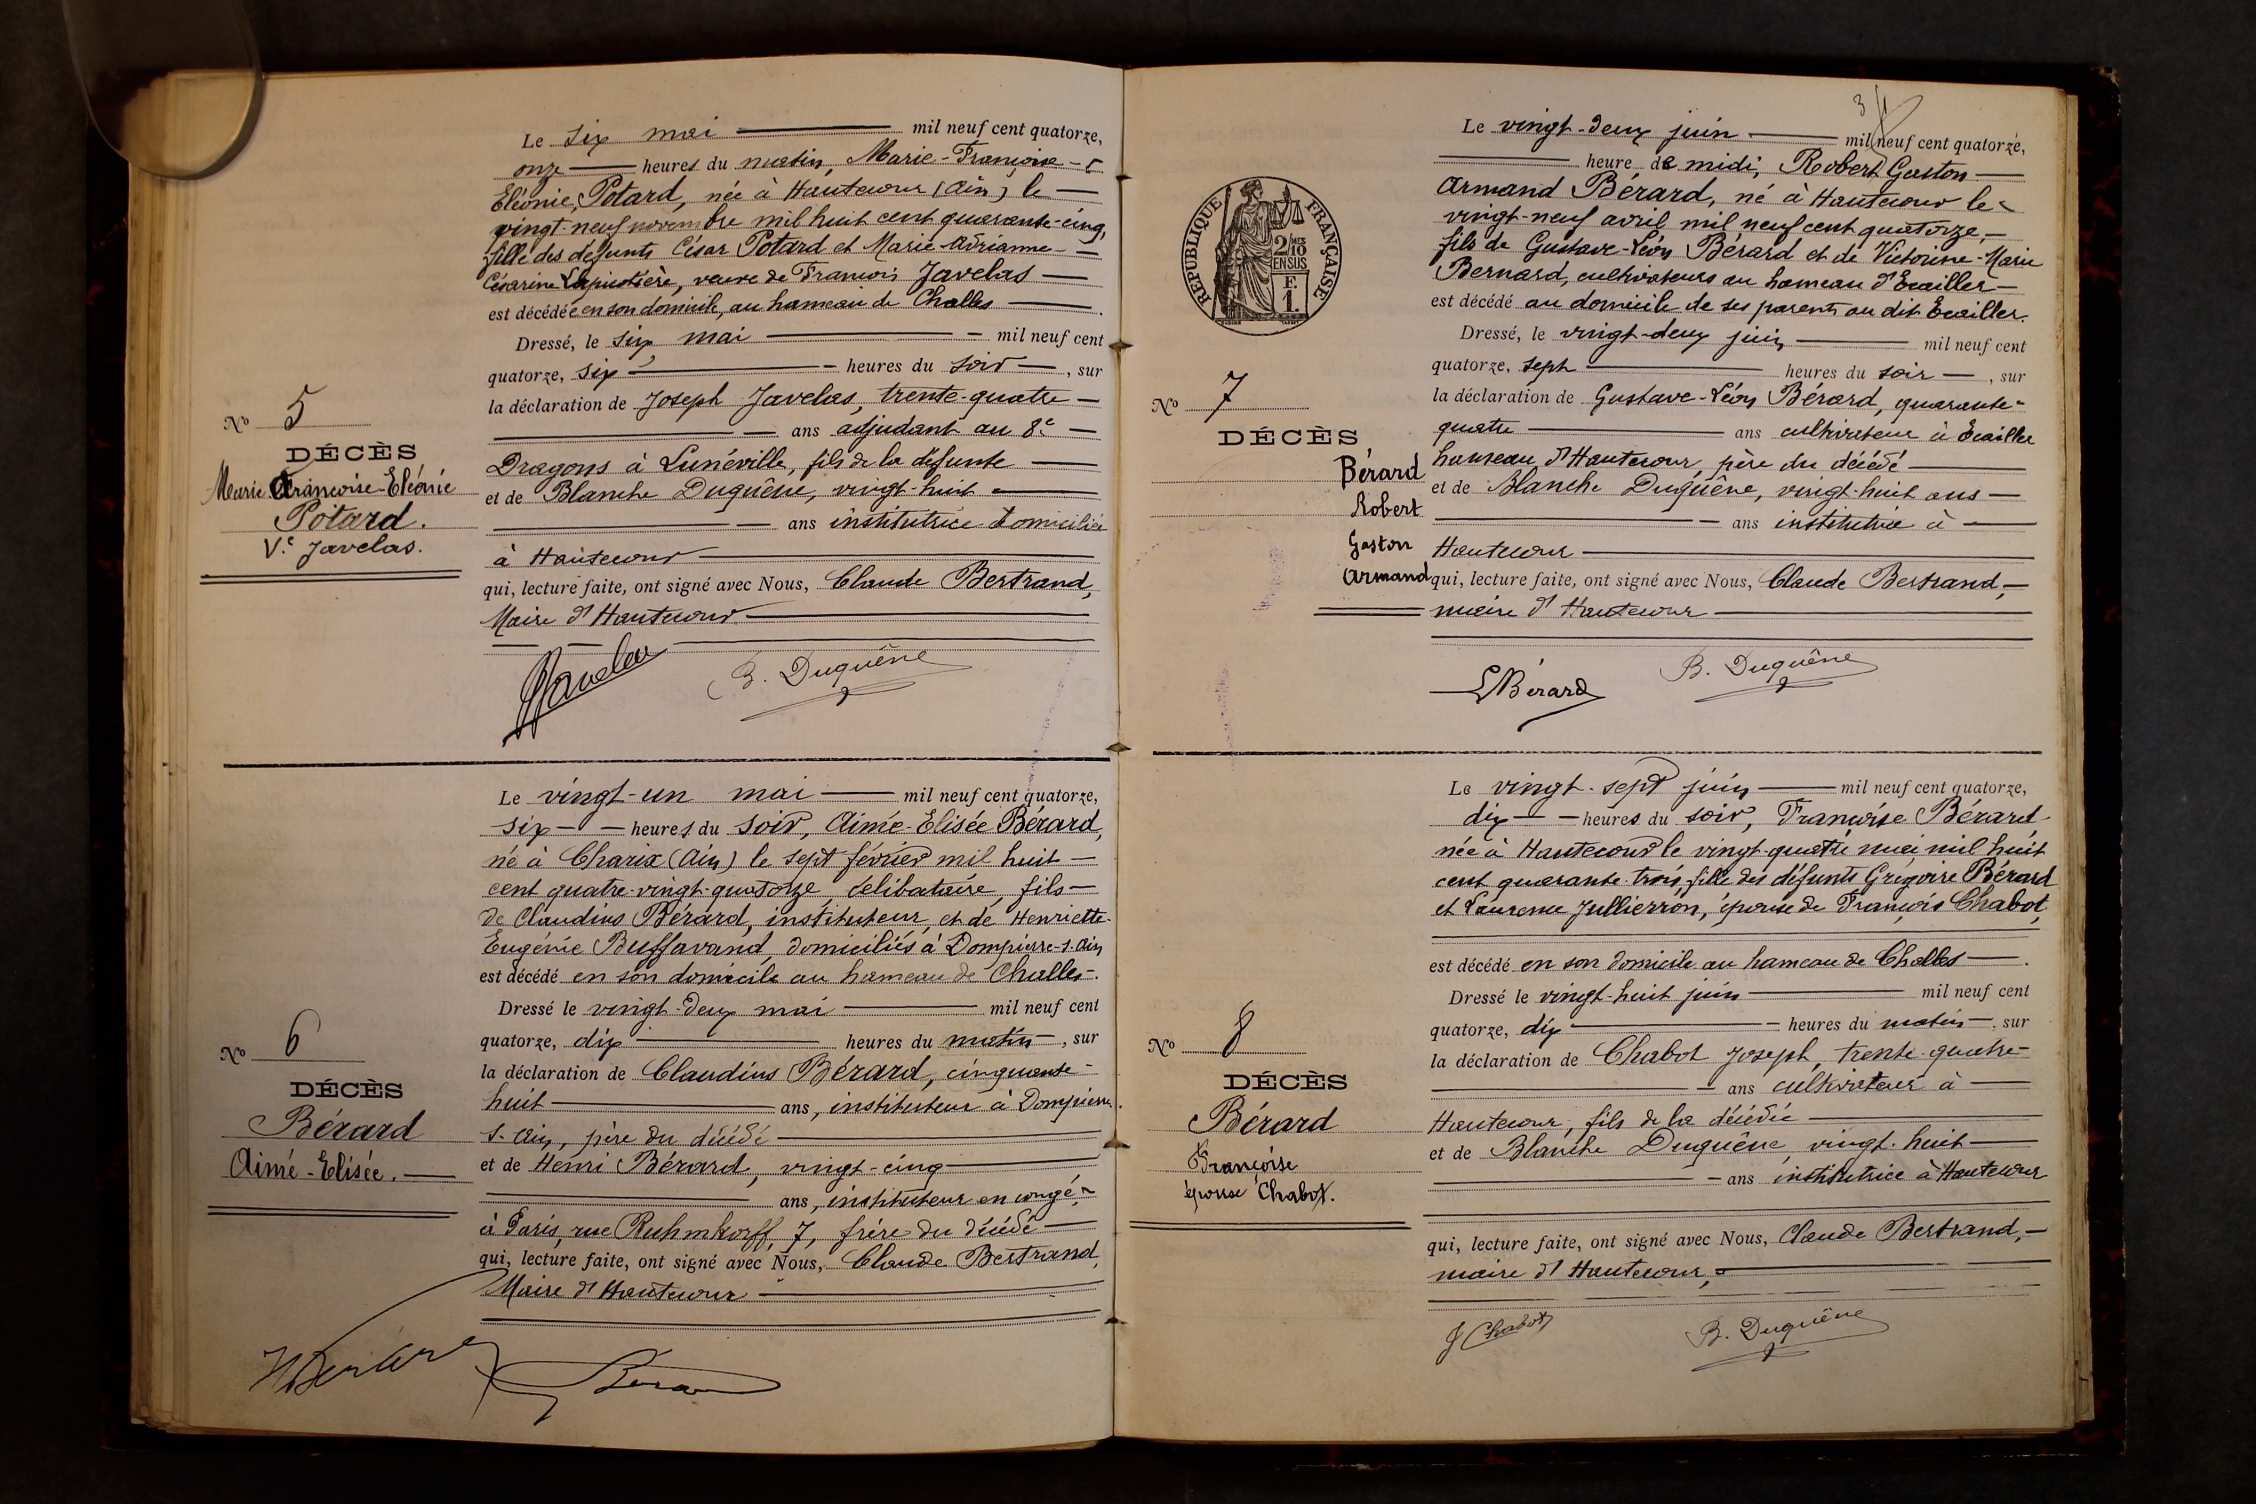 Le six mai mil neuf cent quatorze,
onze heures du matin, Marie-Françoise-
Eléonie, Potard, née à Hautecour (Ain) le
vingt-neuf novembre mil huit cent quarante-cinq,
fille des défunts César Potard et Marie-Adrianne-
Césarine veuve de François Javelas
est décédée en son domicile, au hameau de Challes
Dressé, le six mai mil neuf cent
quatorze, six heures du soir, sur
la déclaration de Joseph Javelas, trente-quatre
ans adjudant au 8e
Dragons à Lunéville, fils de la défunte
et de Blanche Duquêne, vingt-huit
ans institutrice domiciliée
à Hautecour
qui, lecture faite, ont signé avec Nous, Claude Bertrand,
Maire d'Hautecour
Nº 5
DÉCÈS
Marie Françoise-Eléonie
Potard.
Ve Javelas.
Javelas B. Duquêne
Le vingt-un mai mil neuf cent quatorze,
six heures du soir, Aimé-Elisée Bérard,
né à Charix (Ain) le sept février mil huit
cent quatre-vingt-quatorze, célibataire, fils
de Claudius Bérard, instituteur, et de Henriette-
Eugénie Buffavand, domiciliés à Dompierre-s.-Ain
est décédé en son domicile au hameau de Challes.
Dressé le vingt-deux mai mil neuf cent
quatorze, dix heures du matin, sur
la déclaration de Claudius Bérard, cinquante-
huit ans, instituteur à Dompierre
s.-Ain, père du décédé
et de Henri Bérard, vingt-cinq
ans, instituteur en congé,
à Paris, rue Ruhmkorff, 7, frère du décédé
qui, lecture faite, ont signé avec Nous, Claude Bertrand,
Maire d'Hautecour
Nº 6
DÉCÈS
Bérard
Aimé-Elisée.
H Bérard Bérard
3/4
RÉPUBLIQUE FRANÇAISE
2/10 MES
EN SUS
F.
1.
Le vingt-deux juin mil neuf cent quatorze,
heure de midi, Robert Gaston
Armand Bérard, né à Hautecour le
vingt-neuf avril mil neuf cent quatorze,
fils de Gustave-Léon Bérard et de Victorine-Marie
Bernard, cultivateurs au hameau d'Ecailler
est décédé au domicile de ses parents au dit Ecailler.
Dressé, le vingt-deux juin mil neuf cent
quatorze, sept heures du soir, sur
la déclaration de Gustave-Léon Bérard, quarante-
quatre ans cultivateur à Ecailler
hameau d'Hautecour, père du décédé
et de Blanche Duquêne, vingt-huit ans
ans institutrice à
Hautecour
qui, lecture faite, ont signé avec Nous, Claude Bertrand,
maire d'Hautecour
Nº 7
DÉCÈS
Bérard
Robert
Gaston
Armand
L Bérard B. Duquêne
Le vingt-sept juin mil neuf cent quatorze,
dix heures du soir, Françoise Bérard
née à Hautecour le vingt-quatre mai mil huit
cent quarante-trois, fille des défunts Grégoire Bérard
et Laurence Jullierron, épouse de François Chabot,
est décédé en son domicile au hameau de Challes.
Dressé le vingt-huit juin mil neuf cent
quatorze, dix heures du matin, sur
la déclaration de Chabot Joseph, trente-quatre
ans cultivateur à
Hautecour, fils de la décédée
et de Blanche Duquêne, vingt-huit
ans institutrice à Hautecour
qui, lecture faite, ont signé avec Nous, Claude Bertrand,
maire d'Hautecour,
Nº 8
DÉCÈS
Bérard
Françoise
épouse Chabot.
J Chabot B. Duquêne